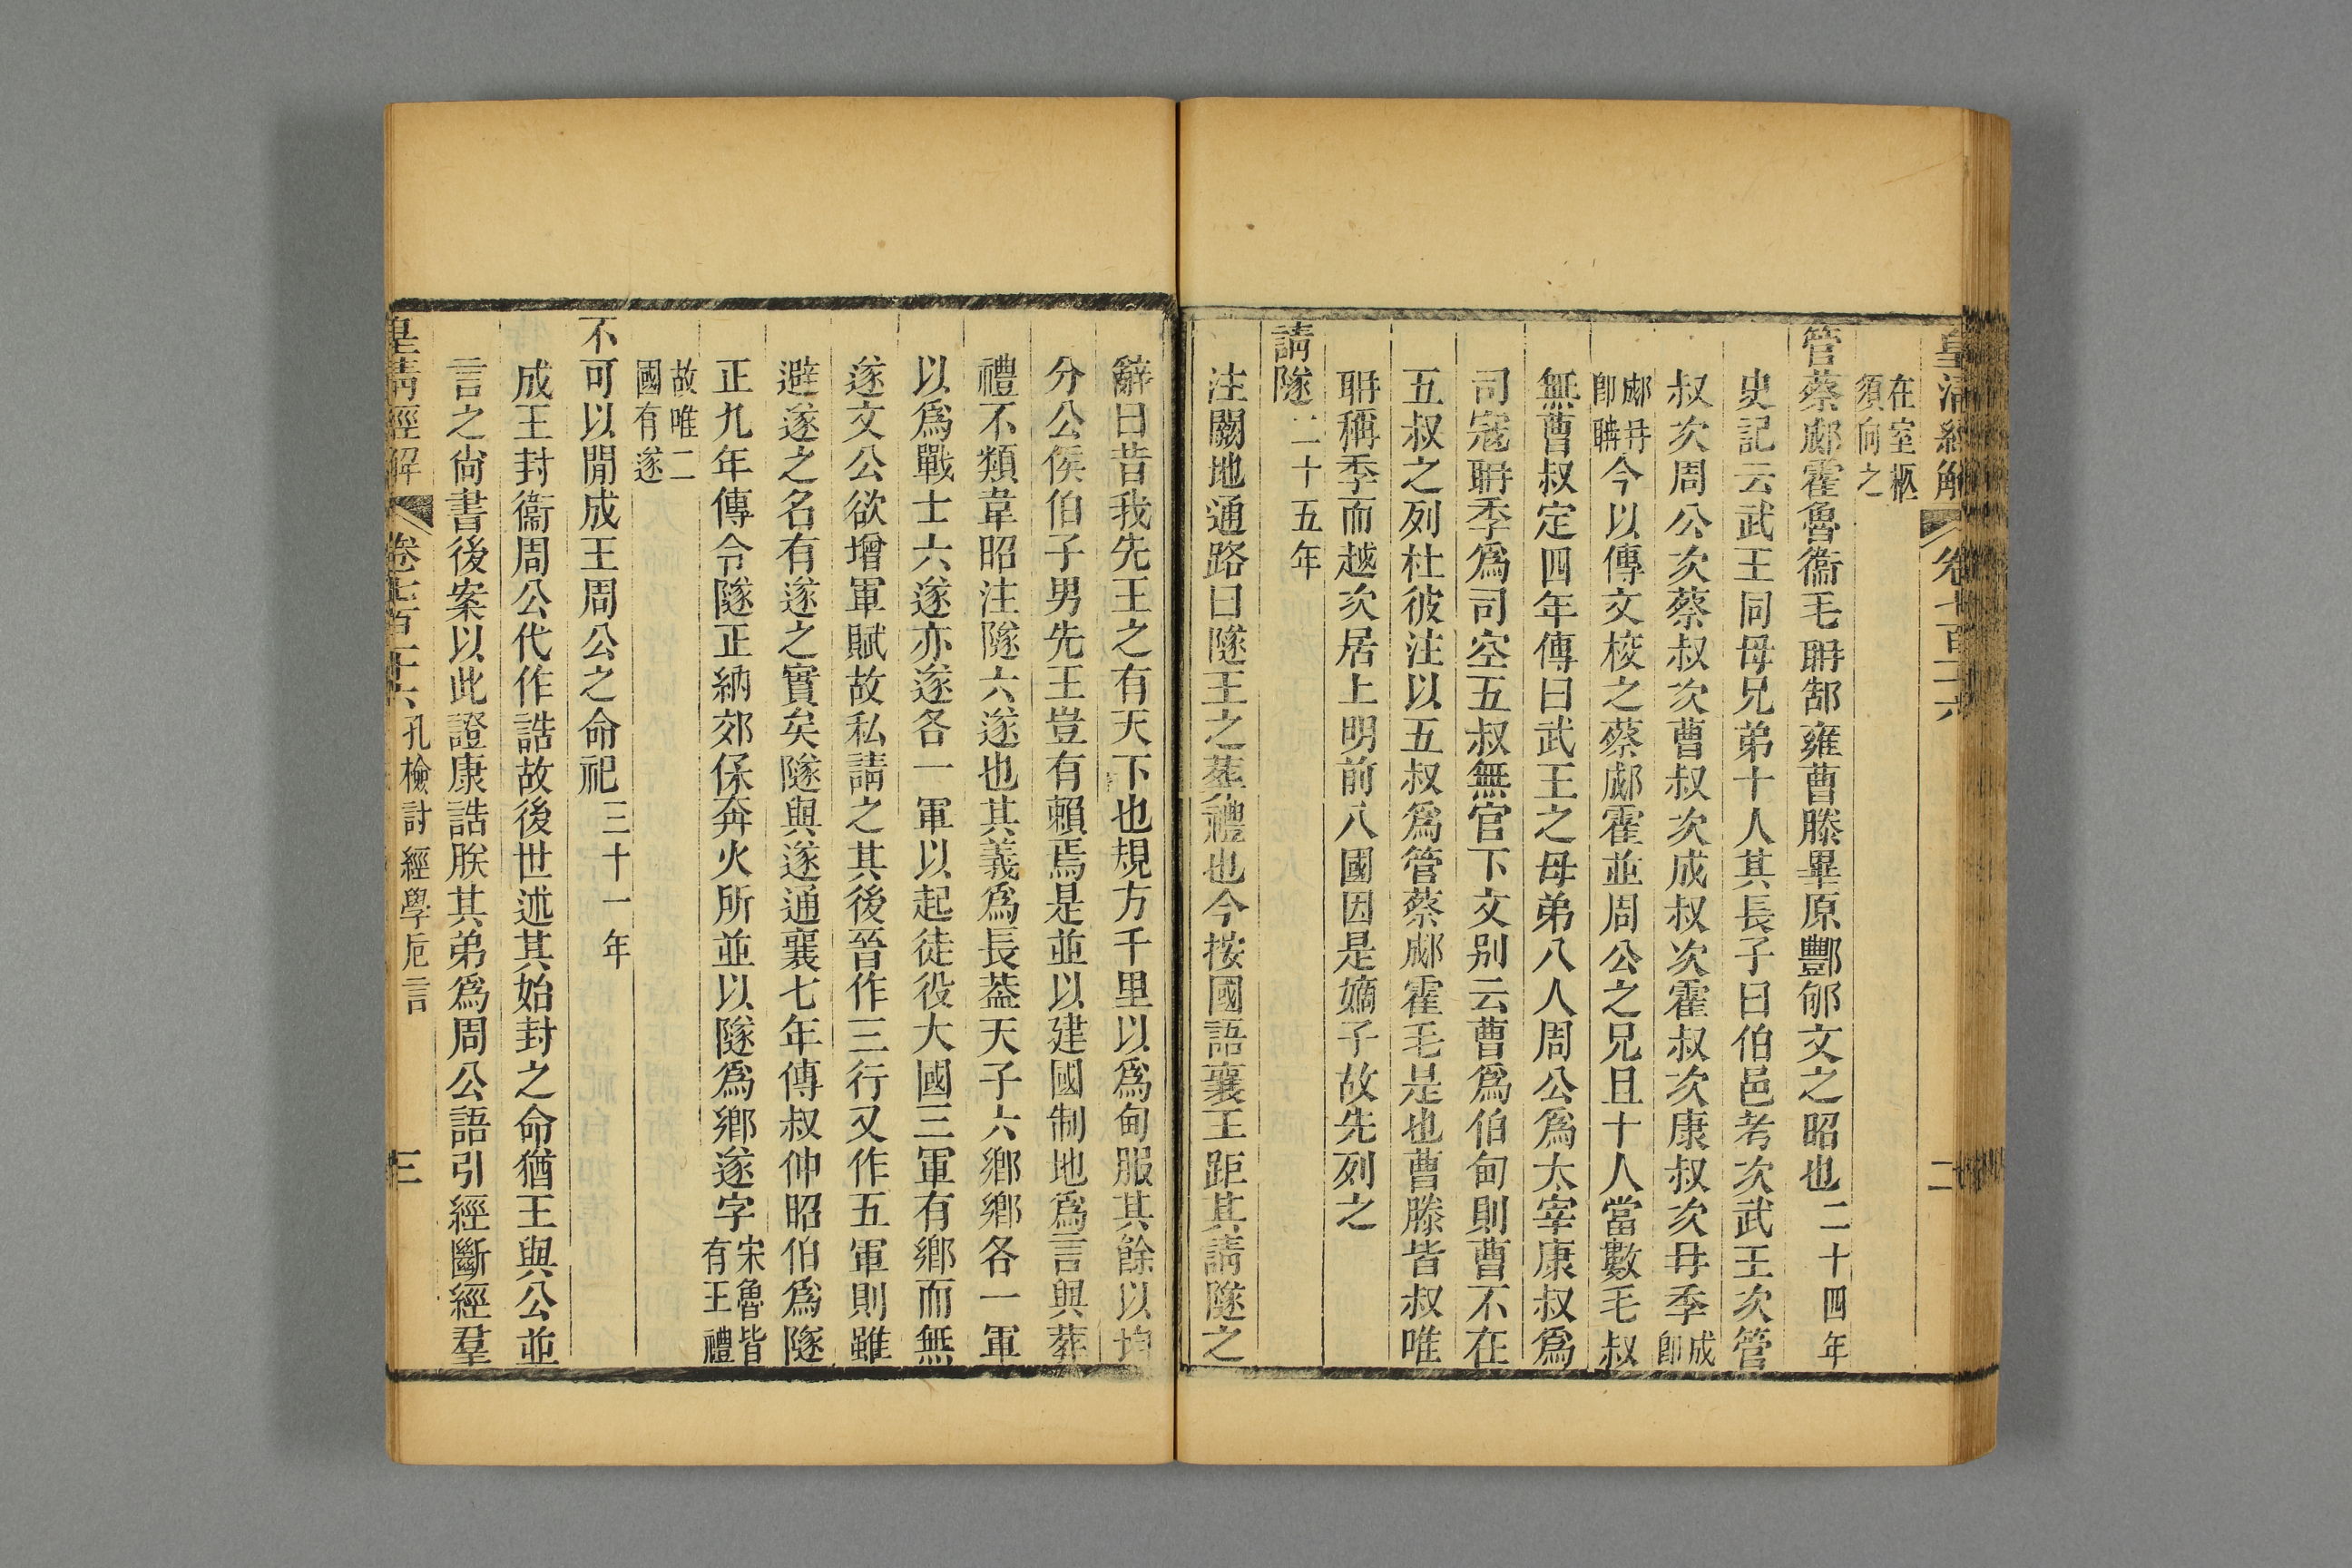 皇清經解 卷七百十六 二
在室柩
須向之
管蔡郕霍魯衞毛聃郜雍曹滕畢原酆郇文之昭也二十四年
史記云武王同母兄弟十人其長子曰伯邑考次武王次管
叔次周公次蔡叔次曹叔次成叔次霍叔次康叔次冉季成卽
郕冉卽聃今以傳文校之蔡郕霍並周公之兄且十人當數毛叔
無曹叔定四年傳曰武王之母弟八人周公爲太宰康叔爲
司寇聃季爲司空五叔無官下文别云曹爲伯甸則曹不在
五叔之列杜彼注以五叔爲管蔡郕霍毛是也曹滕皆叔唯
聃稱季而越次居上明前八國因是嫡子故先列之
請隧二十五年
注闕地通路曰隧王之葬禮也今按國語襄王距其請隧之
辭曰昔我先王之有天下也規方千里以爲甸服其餘以均
分公侯伯子男先王豈有賴焉是並以建國制地爲言與葬
禮不類韋昭注隧六遂也其義爲長葢天子六鄉鄉各一軍
以爲戰士六遂亦遂各一軍以起徒役大國三軍有鄉而無
遂文公欲增軍賦故私請之其後晉作三行又作五軍則雖
避遂之名有遂之實矣隧與遂通襄七年傳叔仲昭伯爲隧
正九年傳令隧正納郊保奔火所並以隧爲鄉遂字宋魯皆有王禮
故唯二
國有遂
不可以閒成王周公之命祀三十一年
成王封衞周公代作誥故後世述其始封之命猶王與公並
言之尙書後案以此證康誥朕其弟爲周公語引經斷經羣
皇清經解 卷七百十六 孔檢討經學卮言 三